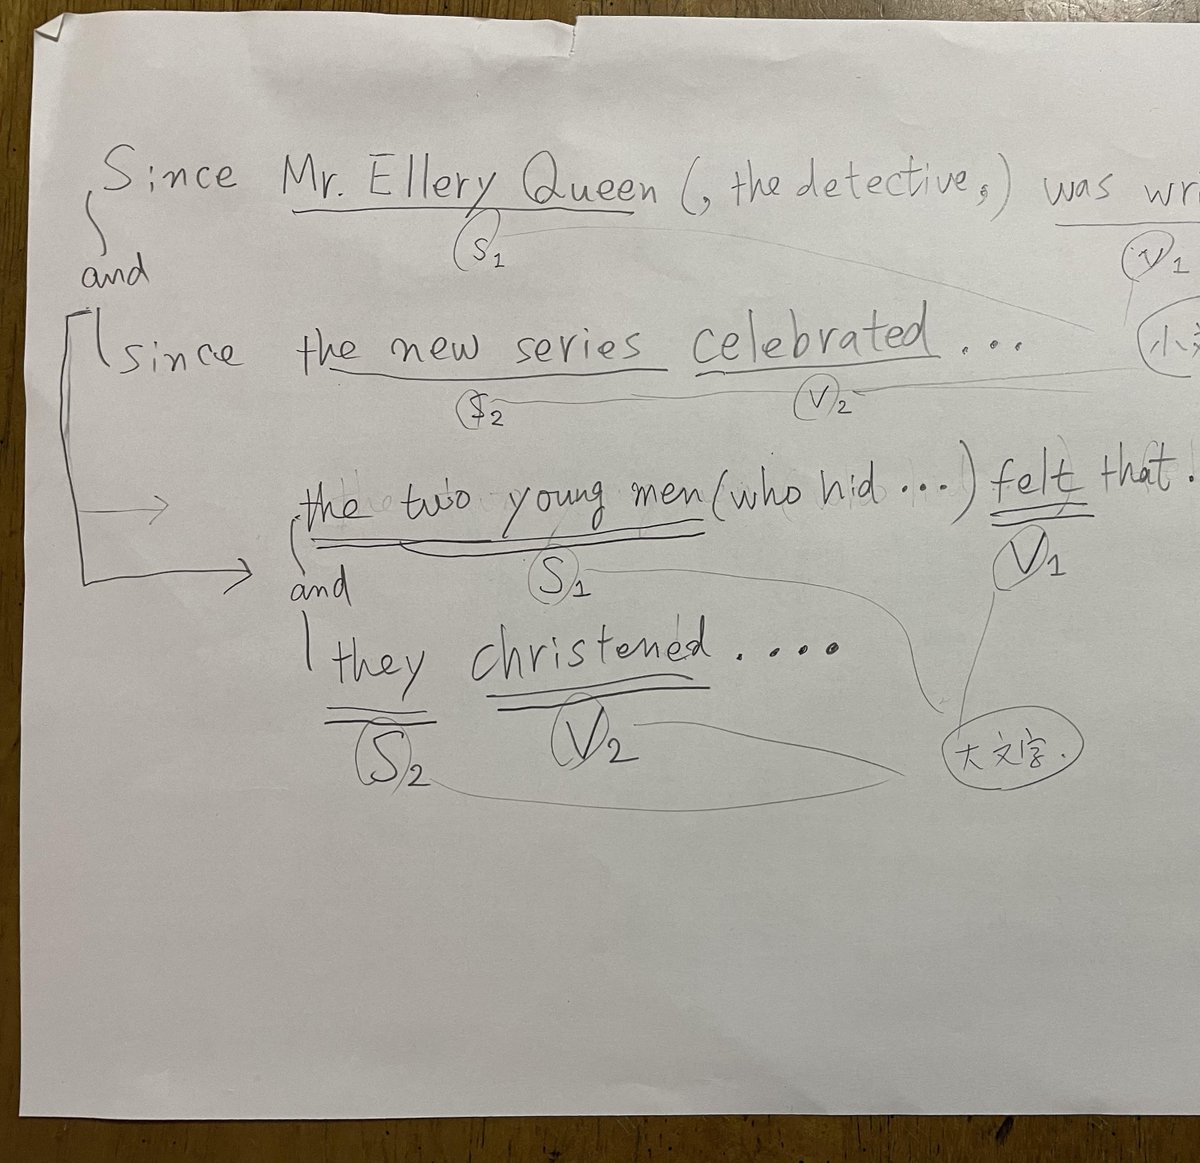 Since Mr. Ellery Queen (, the detective,) was
S1
V1
and
since the new series celebrated ...
S2 V2
the two young men (who hid ...) felt that.
S1 V1
and
they christened ....
S2 V2
大文字.